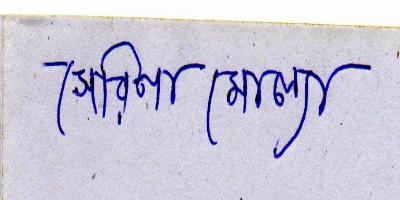 সেরিনা মোল্যা